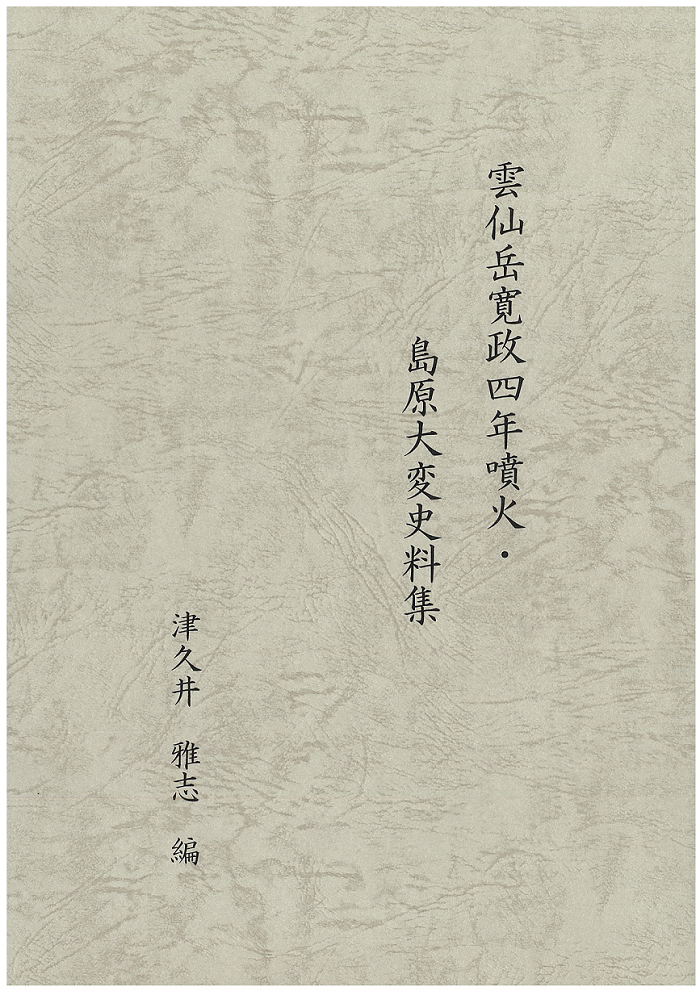 雲仙岳寛政四年噴火・
島原大変史料集
津久井 雅志 編